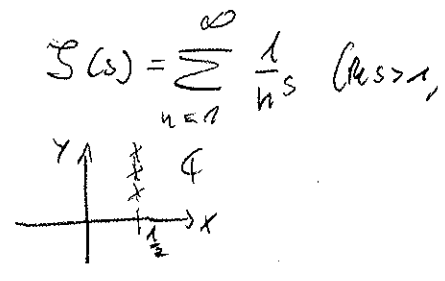 ζ(s) = ∑_{n=1}^{∞} 1/n^s (Re s > 1,
Y x x x ℂ
1/2 X